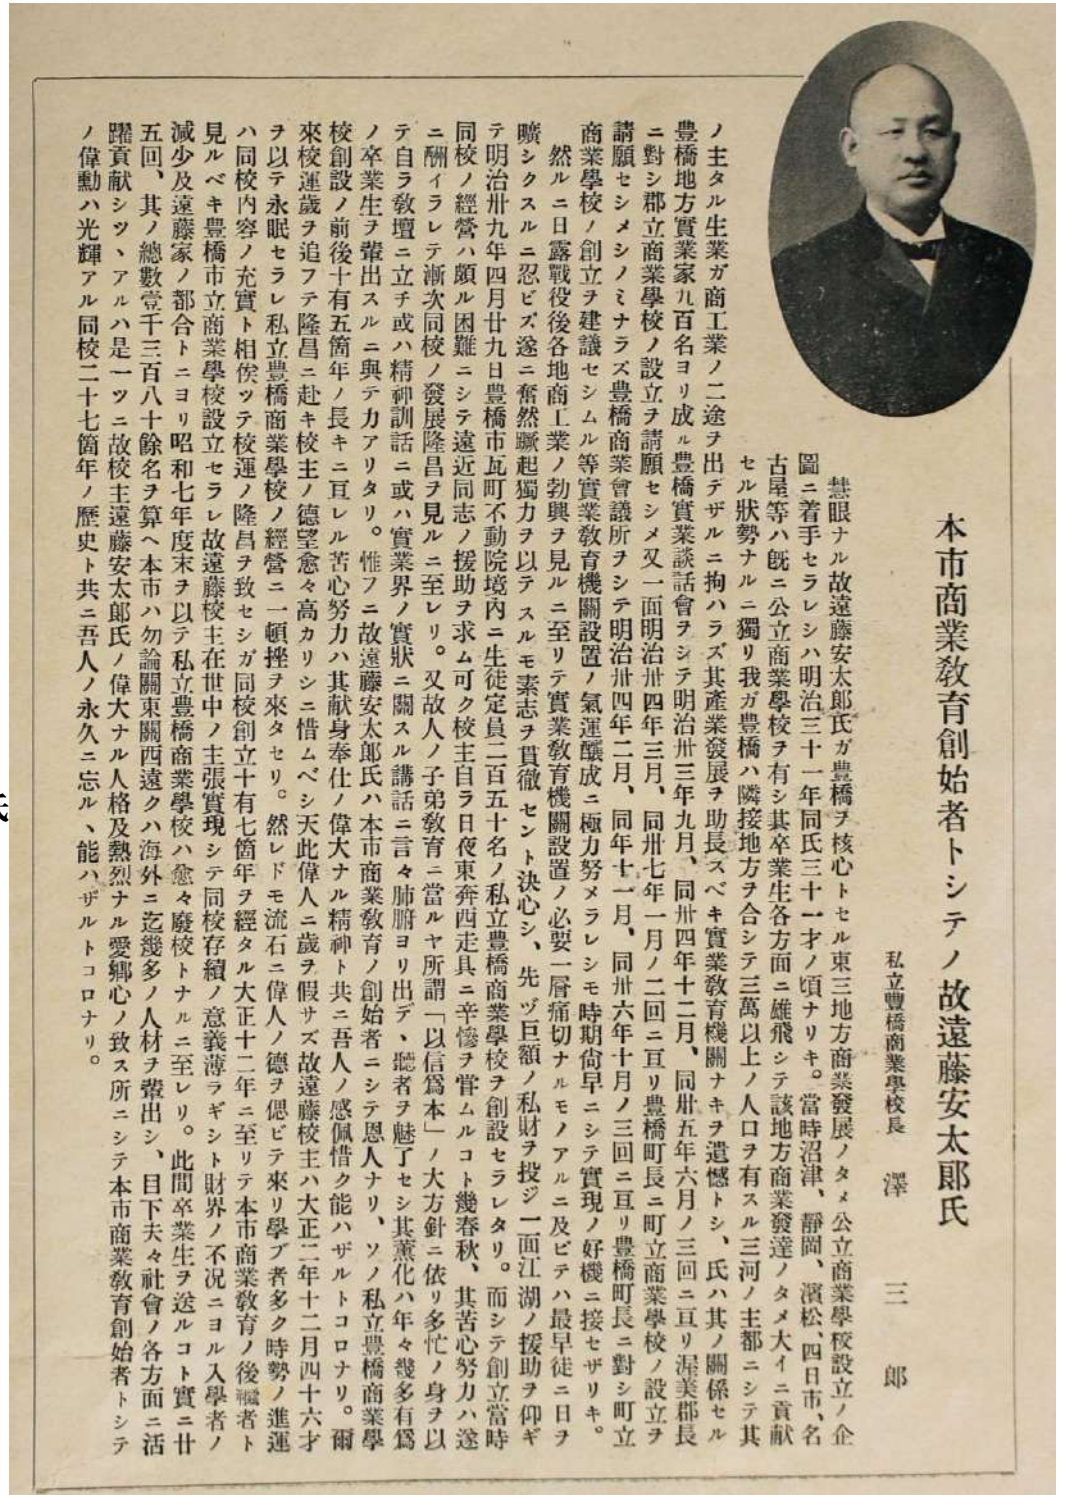 本市商業敎育創始者トシテノ故遠藤安太郞氏
私立豐橋商業學校長　澤　三　郞
慧眼ナル故遠藤安太郞氏ガ豊橋ヲ核心トセル東三地方商業發展ノタメ公立商業學校設立ノ企
圖ニ着手セラレシハ明治三十一年同氏三十一才ノ頃ナリキ。當時沼津、靜岡、濱松、四日市、名
古屋等ハ旣ニ公立商業學校ヲ有シ其卒業生各方面ニ雄飛シテ該地方商業發達ノタメ大イニ貢献
セル狀勢ナルニ獨リ我ガ豊橋ハ隣接地方ヲ合シテ三萬以上ノ人口ヲ有スル三河ノ主都ニシテ其
ノ主タル生業ガ商工業ノ二途ヲ出デザルニ拘ハラズ其產業發展ヲ助長スベキ實業敎育機關ナキヲ遺憾トシ、氏ハ其ノ關係セル
豊橋地方實業家九百名ヨリ成ル豊橋實業談話會ヲシテ明治卅三年九月、同卅四年十二月、同卅五年六月ノ三回ニ亘リ渥美郡長
ニ對シ郡立商業學校ノ設立ヲ請願セシメ又一面明治卅四年三月、同卅七年一月ノ二回ニ亘リ豊橋町長ニ町立商業學校ノ設立ヲ
請願セシメシノミナラズ豊橋商業會議所ヲシテ明治卅四年二月、同年十一月、同卅六年十月ノ三回ニ亘リ豊橋町長ニ對シ町立
商業學校ノ創立ヲ建議セシムル等實業敎育機關設置ノ氣運釀成ニ極力努メラレシモ時期尙早ニシテ實現ノ好機ニ接セザリキ。
然ルニ日露戰役後各地商工業ノ勃興ヲ見ルニ至リテ實業敎育機關設置ノ必要一層痛切ナルモノアルニ及ビテハ最早徒ニ日ヲ
曠シクスルニ忍ビズ遂ニ奮然蹶起獨力ヲ以テスルモ素志ヲ貫徹セント決心シ、先ヅ巨額ノ私財ヲ投ジ一面江湖ノ援助ヲ仰ギ
テ明治卅九年四月廿九日豊橋市瓦町不動院境內ニ生徒定員二百五十名ノ私立豊橋商業學校ヲ創設セラレタリ。而シテ創立當時
同校ノ經營ハ頗ル困難ニシテ遠近同志ノ援助ヲ求ム可ク校主自ラ日夜東奔西走具ニ辛慘ヲ甞ムルコト幾春秋、其苦心努力ハ遂
ニ酬イラレテ漸次同校ノ發展隆昌ヲ見ルニ至レリ。又故人ノ子弟敎育ニ當ルヤ所謂「以信爲本」ノ大方針ニ依リ多忙ノ身ヲ以
テ自ラ敎壇ニ立チ或ハ精神訓話ニ或ハ實業界ノ實狀ニ關スル講話ニ言々肺腑ヨリ出デ、聽者ヲ魅了セシ其薰化ハ年々幾多有爲
ノ卒業生ヲ輩出スルニ與テ力アリタリ。惟フニ故遠藤安太郞氏ハ本市商業敎育ノ創始者ニシテ恩人ナリ、ソノ私立豊橋商業學
校創設ノ前後十有五箇年ノ長キニ亘レル苦心努力ハ其献身奉仕ノ偉大ナル精神ト共ニ吾人ノ感佩惜ク能ハザルトコロナリ。爾
來校運歲ヲ追フテ隆昌ニ赴キ校主ノ德望愈々高カリシニ惜ムベシ天此偉人ニ歲ヲ假サズ故遠藤校主ハ大正二年十二月四十六才
ヲ以テ永眠セラレ私立豊橋商業學校ノ經營ニ一頓挫ヲ來タセリ。然レドモ流石ニ偉人ノ德ヲ偲ビテ來リ學ブ者多ク時勢ノ進運
ハ同校內容ノ充實ト相俟ツテ校運ノ隆昌ヲ致セシガ同校創立十有七箇年ヲ經タル大正十二年ニ至リテ本市商業敎育ノ後繼者ト
見ルベキ豊橋市立商業學校設立セラレ故遠藤校主在世中ノ主張實現シテ同校存續ノ意義薄ラギシト財界ノ不況ニヨル入學者ノ
減少及遠藤家ノ都合トニヨリ昭和七年度末ヲ以テ私立豊橋商業學校ハ愈々廢校トナルニ至レリ。此間卒業生ヲ送ルコト實ニ廿
五回、其ノ總數壹千三百八十餘名ヲ算ヘ本市ハ勿論關東關西遠クハ海外ニ迄幾多ノ人材ヲ輩出シ、目下夫々社會ノ各方面ニ活
躍貢献シツヽアルハ是一ツニ故校主遠藤安太郞氏ノ偉大ナル人格及熱烈ナル愛鄕心ノ致ス所ニシテ本市商業敎育創始者トシテ
ノ偉勳ハ光輝アル同校二十七箇年ノ歷史ト共ニ吾人ノ永久ニ忘ルヽ能ハザルトコロナリ。